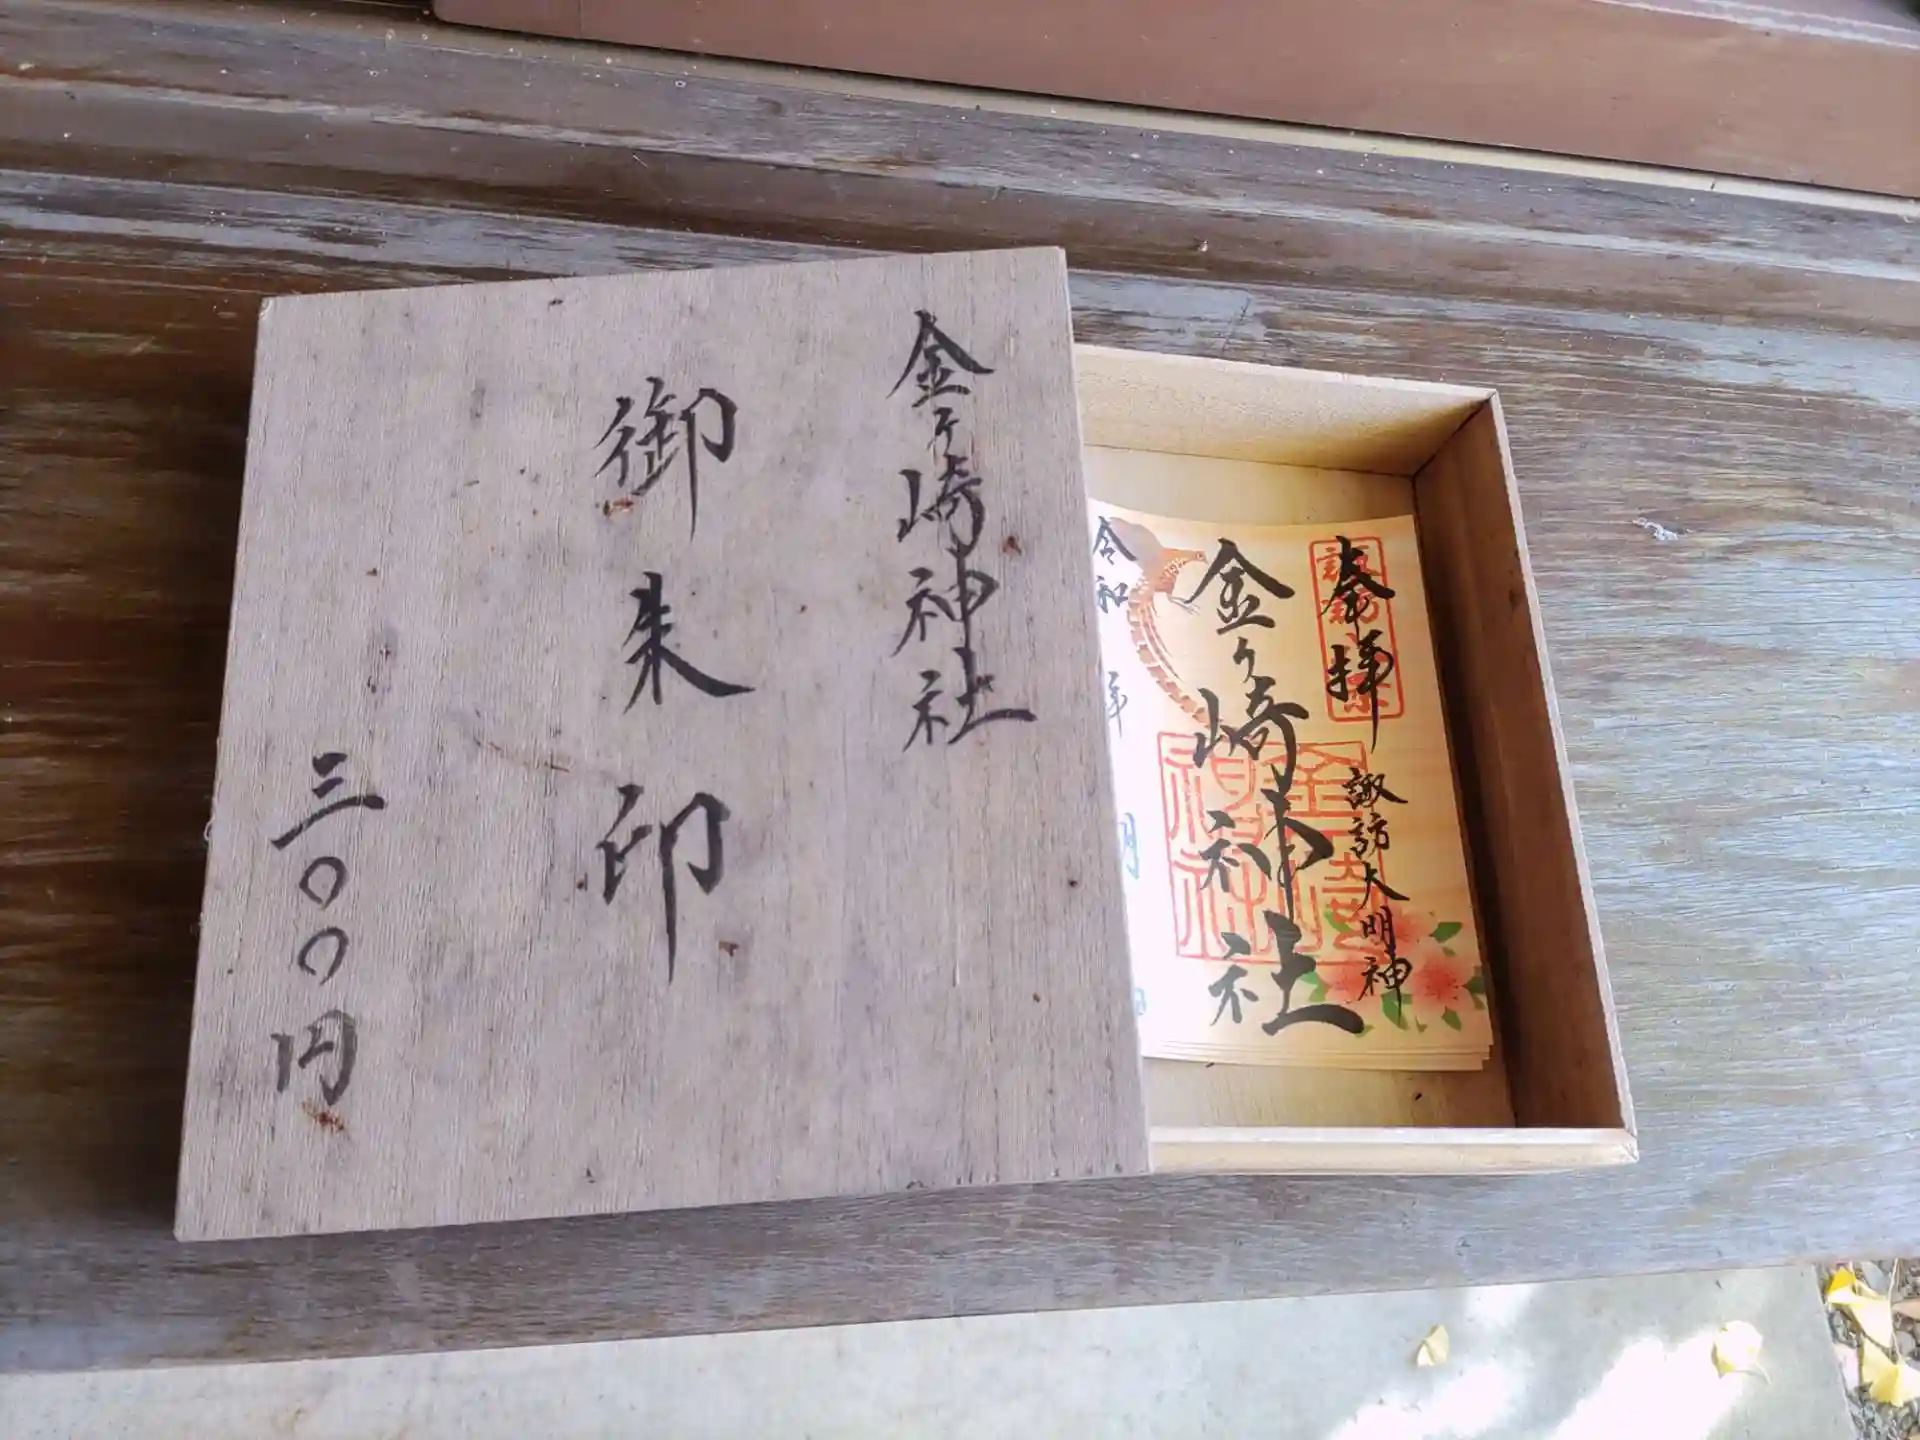 金ヶ崎神社
御朱印
三〇〇円
奉拝
諏訪大明神
金ヶ崎神社
令和
年
月
日